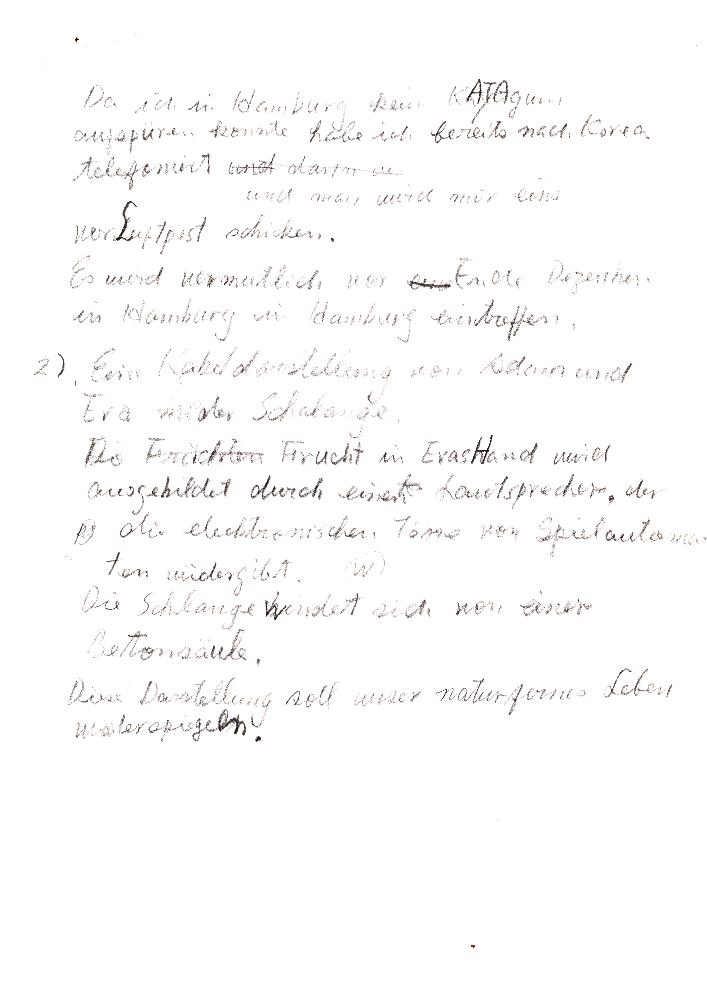 Da ich in Hamburg kein KAYAgum
aufspüren konnte habe ich bereits nach Korea
telefoniert und
und man wird mir eins
per Luftpost schicken.
Es wird vermutlich vor Ende Dezember
in Hamburg in Hamburg eintreffen.
2) Eine Kabeldarstellung von Adam und
Eva mit der Schalange.
Die Früchten Frucht in Evas Hand wird
ausgebildet durch einen Lautsprecher, der
die elecktronischen Töne von Spielautoma
ten widergibt. W
Die Schlange windet sich von einer
Bettonsäule.
Diese Darstellung soll unser naturfernes Leben
widerspiegeln.